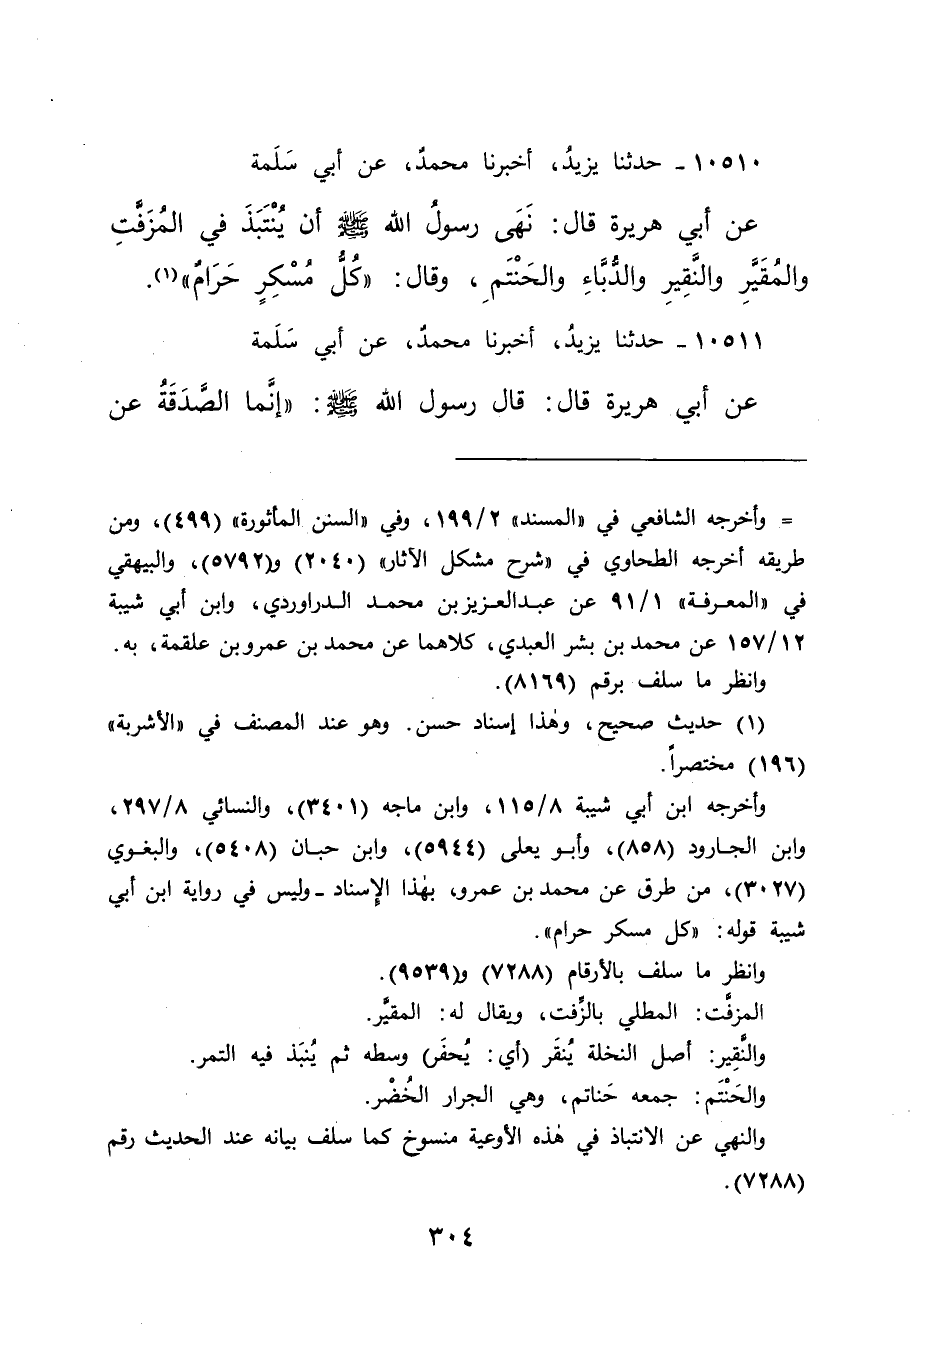 ١٠٥١٠ ـ حدثنا يزيدُ، أخبرنا محمدٌ، عن أبي سَلَمة
عن أبي هريرة قال: نَهَى رسولُ الله ﷺ أن يُنْتَبَذَ في المُزَفَّتِ
والمُقَيَّرِ والنَّقِيرِ والدُّبَّاءِ والحَنْتَمِ، وقال: «كُلُّ مُسْكِرٍ حَرَامٌ»(١).
١٠٥١١ ـ حدثنا يزيدُ، أخبرنا محمدٌ، عن أبي سَلَمة
عن أبي هريرة قال: قال رسول الله ﷺ: «إنَّما الصَّدَقَةُ عن
= وأخرجه الشافعي في «المسند» ١٩٩/٢، وفي «السنن المأثورة» (٤٩٩)، ومن
طريقه أخرجه الطحاوي في «شرح مشكل الآثار» (٢٠٤٠) و(٥٧٩٢)، والبيهقي
في «المعرفة» ٩١/١ عن عبدالعزيز بن محمد الدراوردي، وابن أبي شيبة
١٥٧/١٢ عن محمد بن بشر العبدي، كلاهما عن محمد بن عمرو بن علقمة، به.
وانظر ما سلف برقم (٨١٦٩).
(١) حديث صحيح، وهٰذا إسناد حسن. وهو عند المصنف في «الأشربة»
(١٩٦) مختصراً.
وأخرجه ابن أبي شيبة ١١٥/٨، وابن ماجه (٣٤٠١)، والنسائي ٢٩٧/٨،
وابن الجارود (٨٥٨)، وأبو يعلى (٥٩٤٤)، وابن حبان (٥٤٠٨)، والبغوي
(٣٠٢٧)، من طرق عن محمد بن عمرو، بهٰذا الإسناد ـ وليس في رواية ابن أبي
شيبة قوله: «كل مسكر حرام».
وانظر ما سلف بالأرقام (٧٢٨٨) و(٩٥٣٩).
المزفَّت: المطلي بالزِّفت، ويقال له: المقيَّر.
والنَّقِير: أصل النخلة يُنقَر (أي: يُحفَر) وسطه ثم يُنبَذ فيه التمر.
والحَنْتَم: جمعه حَناتم، وهي الجرار الخُضْر.
والنهي عن الانتباذ في هٰذه الأوعية منسوخ كما سلف بيانه عند الحديث رقم
(٧٢٨٨).
٣٠٤